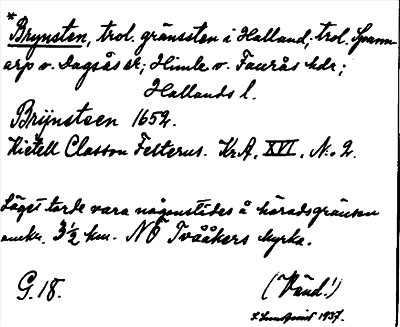 *Brynsten, trol. gränssten i Halland; trol. Spann-
arp o. Dagsås sk; Himle o. Faurås hdr;
Hallands l.
Brÿnsteen 1652.
Kietell Classon Felterus. Kr.A. XVI. N:o 2.
Läget torde vara någonstides å häradsgränsen
omkr. 3½ km. NO Tvååkers kyrka.
G. 18.
(Vänd!)
1937.